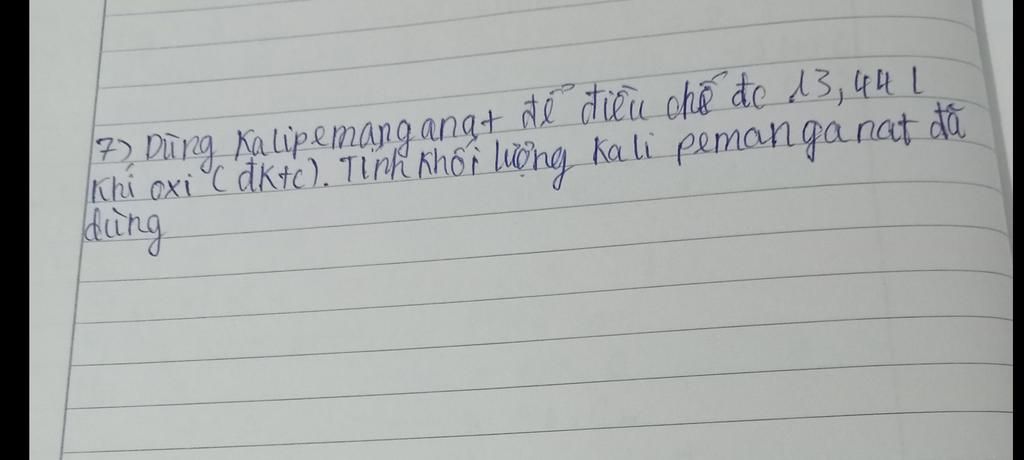 7) Dùng Kalipemanganat để điều chế đc 13,44 l
khí oxi (đktc). Tính khối lượng kali pemanganat đã
dùng